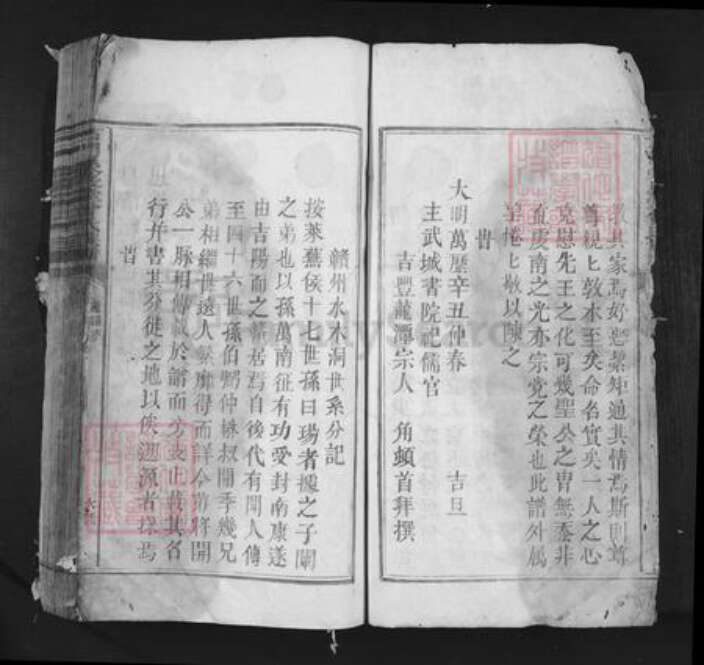 其家焉好惡絜矩通其情焉斯則尊
尊親匕敦本至矣命名實矣一人之心
克慰先王之化可幾聖公之胄無忝非
虔南之光亦宗党之榮也此譜外属
惓匕敬以陳之
旹
大明萬歷辛丑仲春 吉旦
主武城書院祀儒官
吉豐龍潭宗人 角 頓首拜撰
贛州水木洞世系分記
按萊蕪侯十七世孫曰瑒者據之子闡
之弟也以孫萬南征有功愛封南康遂
由吉陽而之 居焉自後代有聞人傳
至四十六世孫伯 仲 叔闇季幾兄
弟相繼世遠人 靡得而詳今 將開
公一脉相傳 於譜而 止載其名
行并書其分徙之地以俟 源者 焉
旹